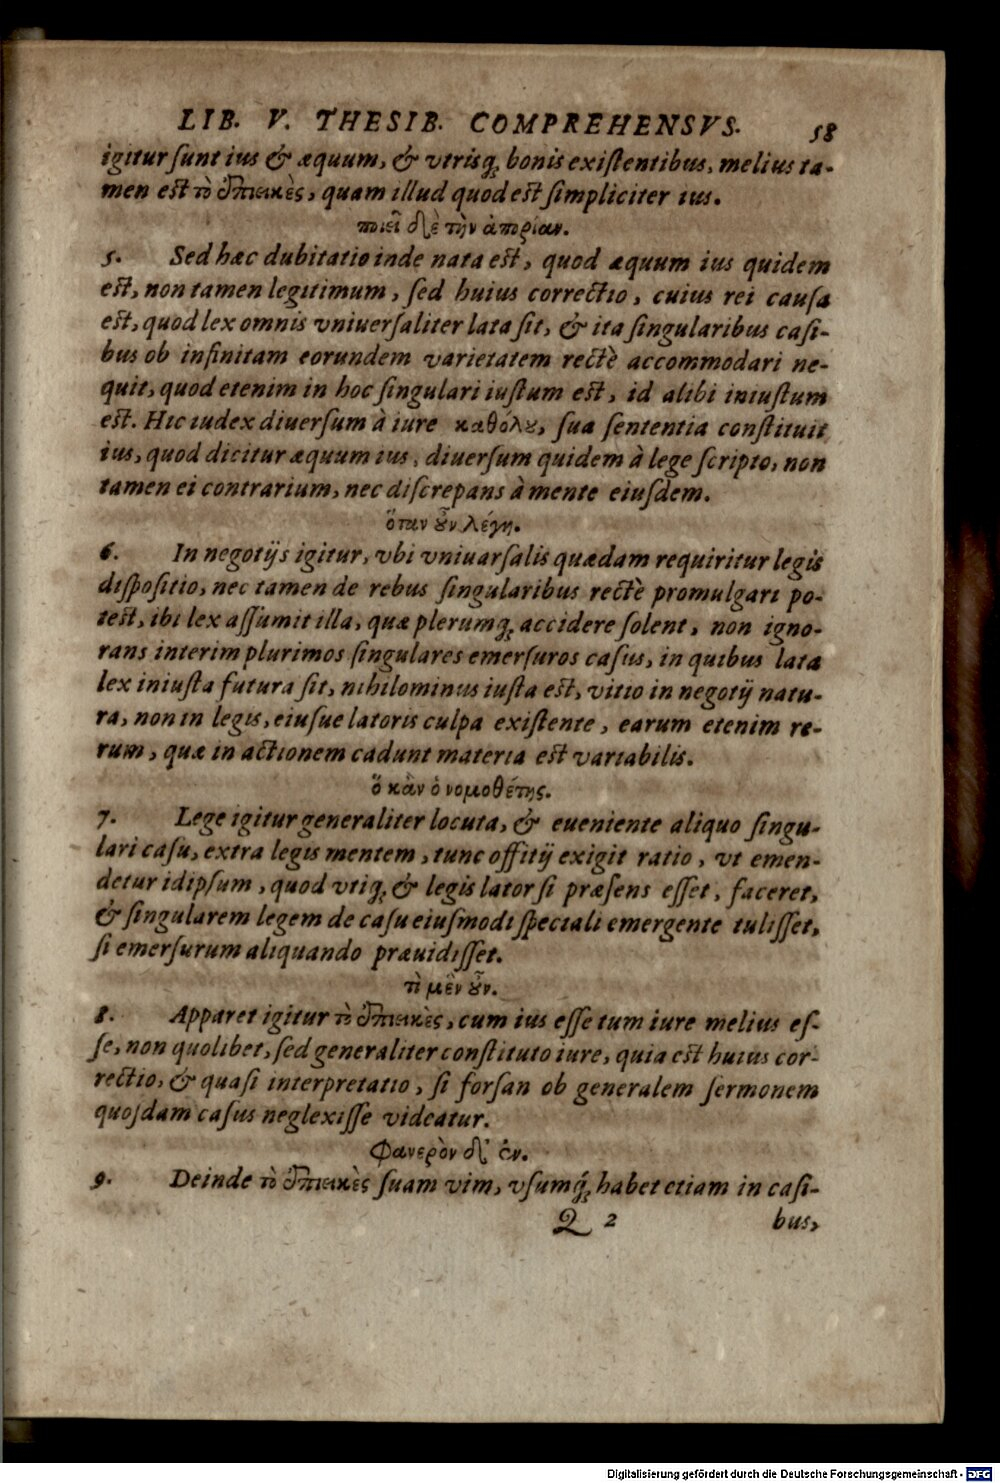 LIB. V. THESIB. COMPREHENSVS. 58
igitur sunt ius & æquum, & vtrisq; bonis existentibus, melius ta-
men est τὸ ἐπιεικὲς, quam illud quod est simpliciter ius.
ποιεῖ δὲ τὴν ἀπορίαν.
5. Sed hæc dubitatio inde nata est, quod æquum ius quidem
est, non tamen legitimum, sed huius correctio, cuius rei causa
est, quod lex omnis vniuersaliter lata sit, & ita singularibus casi-
bus ob infinitam eorundem varietatem rectè accommodari ne-
quit, quod etenim in hoc singulari iustum est, id alibi iniustum
est. Hic iudex diuersum à iure καθόλου, sua sententia constituit
ius, quod dicitur æquum ius, diuersum quidem à lege scripto, non
tamen ei contrarium, nec discrepans à mente eiusdem.
ὅταν οὖν λέγῃ.
6. In negotijs igitur, vbi vniuarsalis quædam requiritur legis
dispositio, nec tamen de rebus singularibus rectè promulgari po-
test, ibi lex assumit illa, quæ plerumq; accidere solent, non igno-
rans interim plurimos singulares emersuros casus, in quibus lata
lex iniusta futura sit, nihilominus iusta est, vitio in negotij natu-
ra, non in legis, eiusue latoris culpa existente, earum etenim re-
rum, quæ in actionem cadunt materia est variabilis.
ὃ κἂν ὁ νομοθέτης.
7. Lege igitur generaliter locuta, & eueniente aliquo singu-
lari casu, extra legis mentem, tunc offitij exigit ratio, vt emen-
detur idipsum, quod vtiq; & legislator si præsens esset, faceret,
& singularem legem de casu eiusmodi speciali emergente tulisset,
si emersurum aliquando præuidisset.
τὶ μὲν οὖν.
8. Apparet igitur τὸ ἐπιεικὲς, cum ius esse tum iure melius es-
se, non quolibet, sed generaliter constituto iure, quia est huius cor-
rectio, & quasi interpretatio, si forsan ob generalem sermonem
quosdam casus neglexisse videatur.
Φανερὸν δ' ἐν.
9. Deinde τὸ ἐπιεικὲς suam vim, vsumq́; habet etiam in casi-
Q 2 bus,
Digitalisierung gefördert durch die Deutsche Forschungsgemeinschaft - DFG